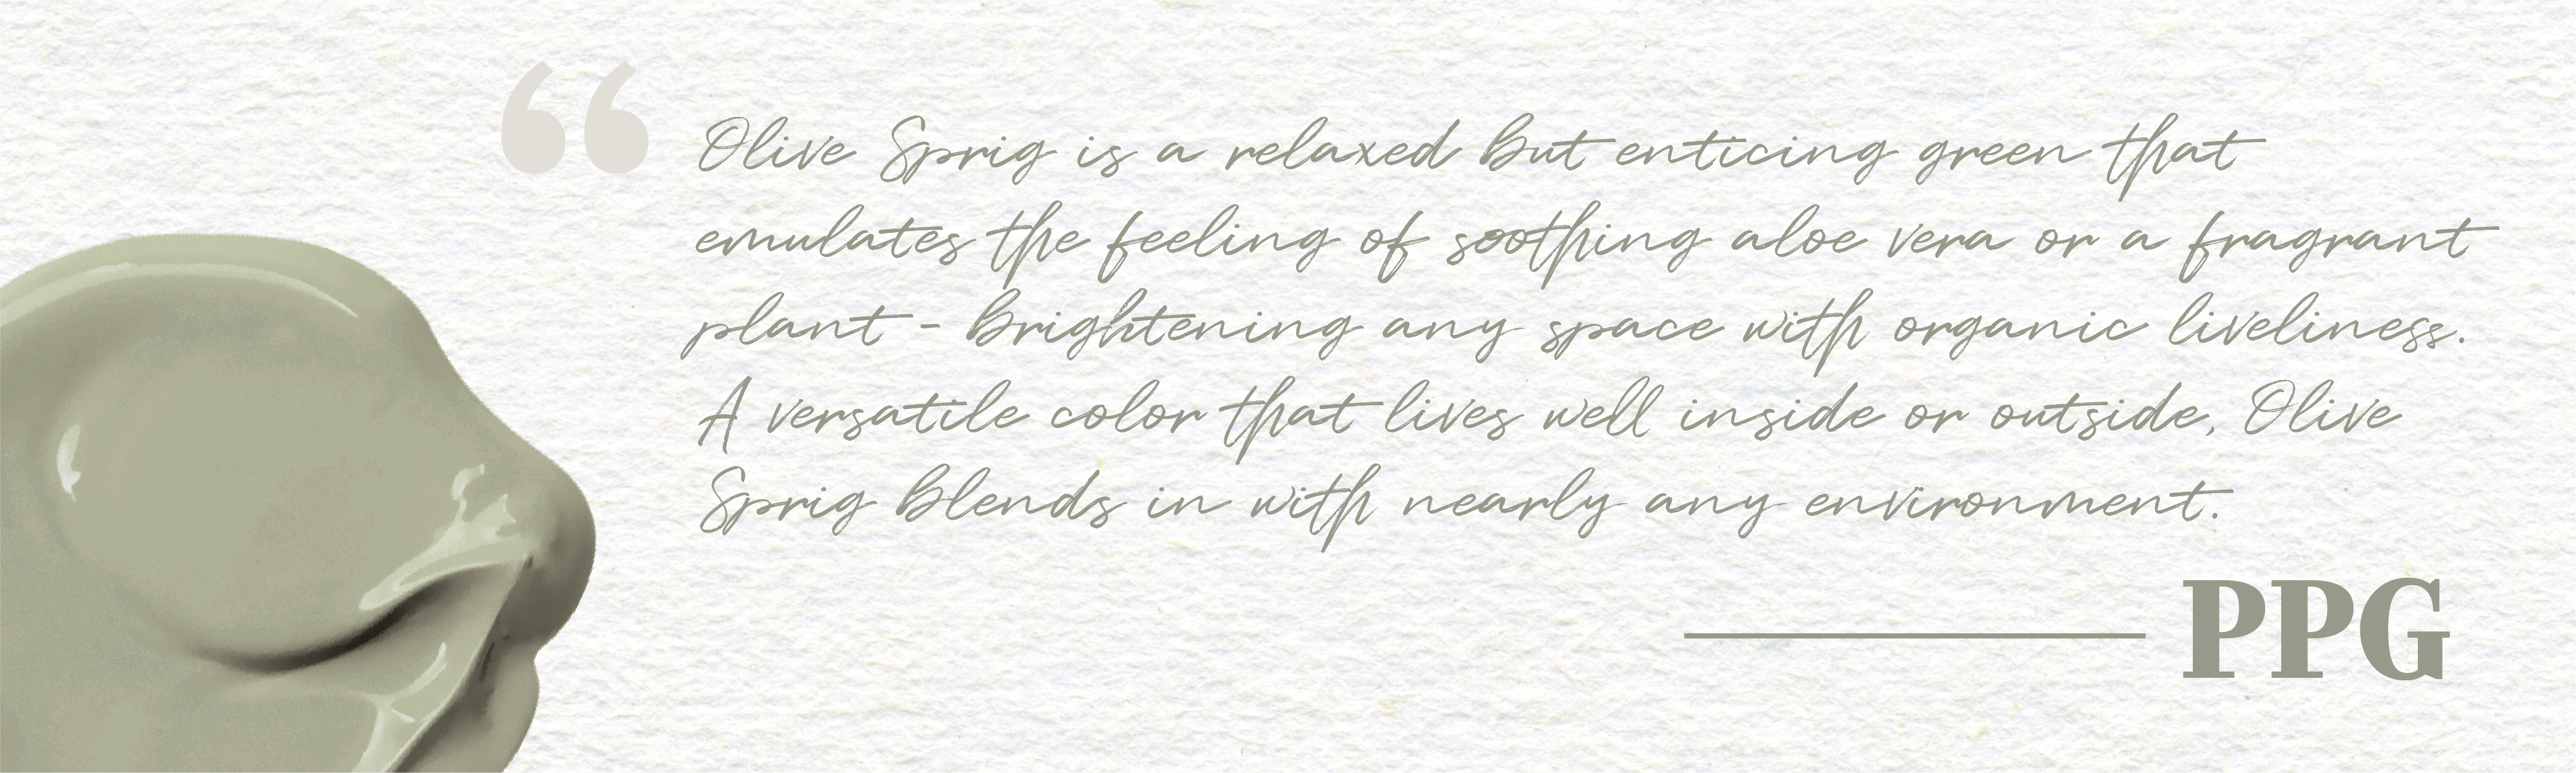 “ Olive Sprig is a relaxed but enticing green that
emulates the feeling of soothing aloe vera or a fragrant
plant - brightening any space with organic liveliness.
A versatile color that lives well inside or outside, Olive
Sprig blends in with nearly any environment.
PPG